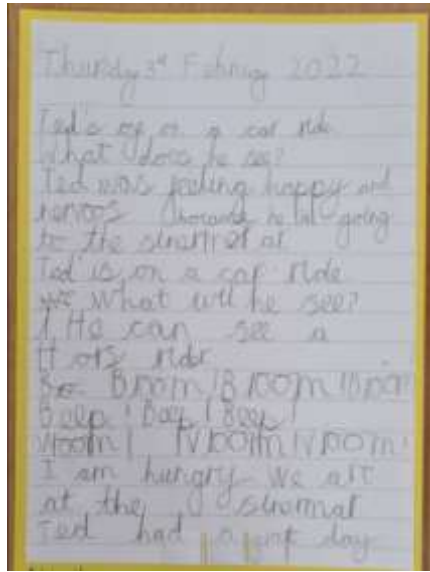 Thursdy 3rd Febrary 2022
Ted's of on a car ride
what does he see?
Ted was feeling happy and
nervos because he is going
to the
Ted is on a car ride
what will he see?
He can see a
rider
Bro Broom! Broom! Broom!
Beep! Beep! Beep!
Vroom! Vroom! Vroom!
I am hungry we are
at the
Ted had a day